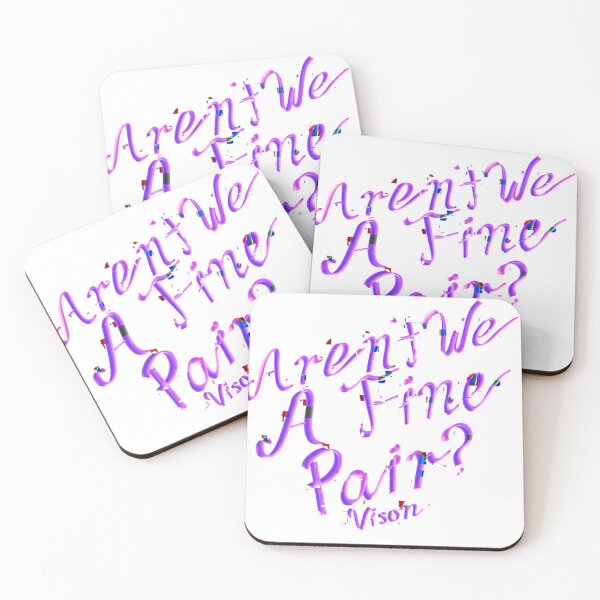 Arent We
A Fine
?
Arent We
A Fine
Pair?
Arent We
A Fine
Pair?
Vison
Arent We
A Fine
Pair?
Vison